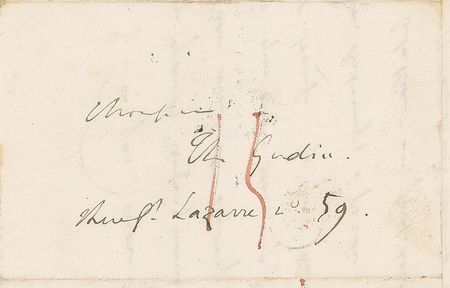 Monsieur
Th Gudin.
Rue St. Lazarre no. 59.
15